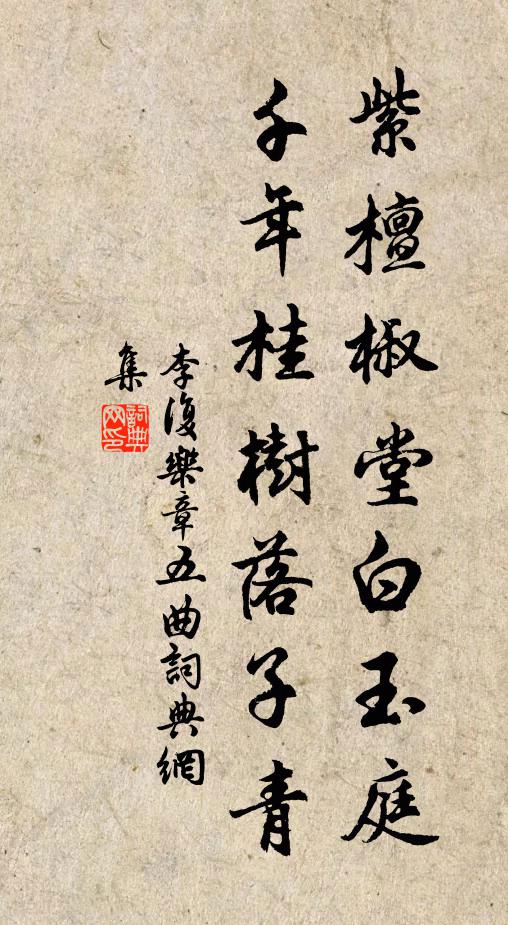 紫檀椒堂白玉庭
千年桂樹落子青
李復樂章五曲詞典網
集
詞典
网印